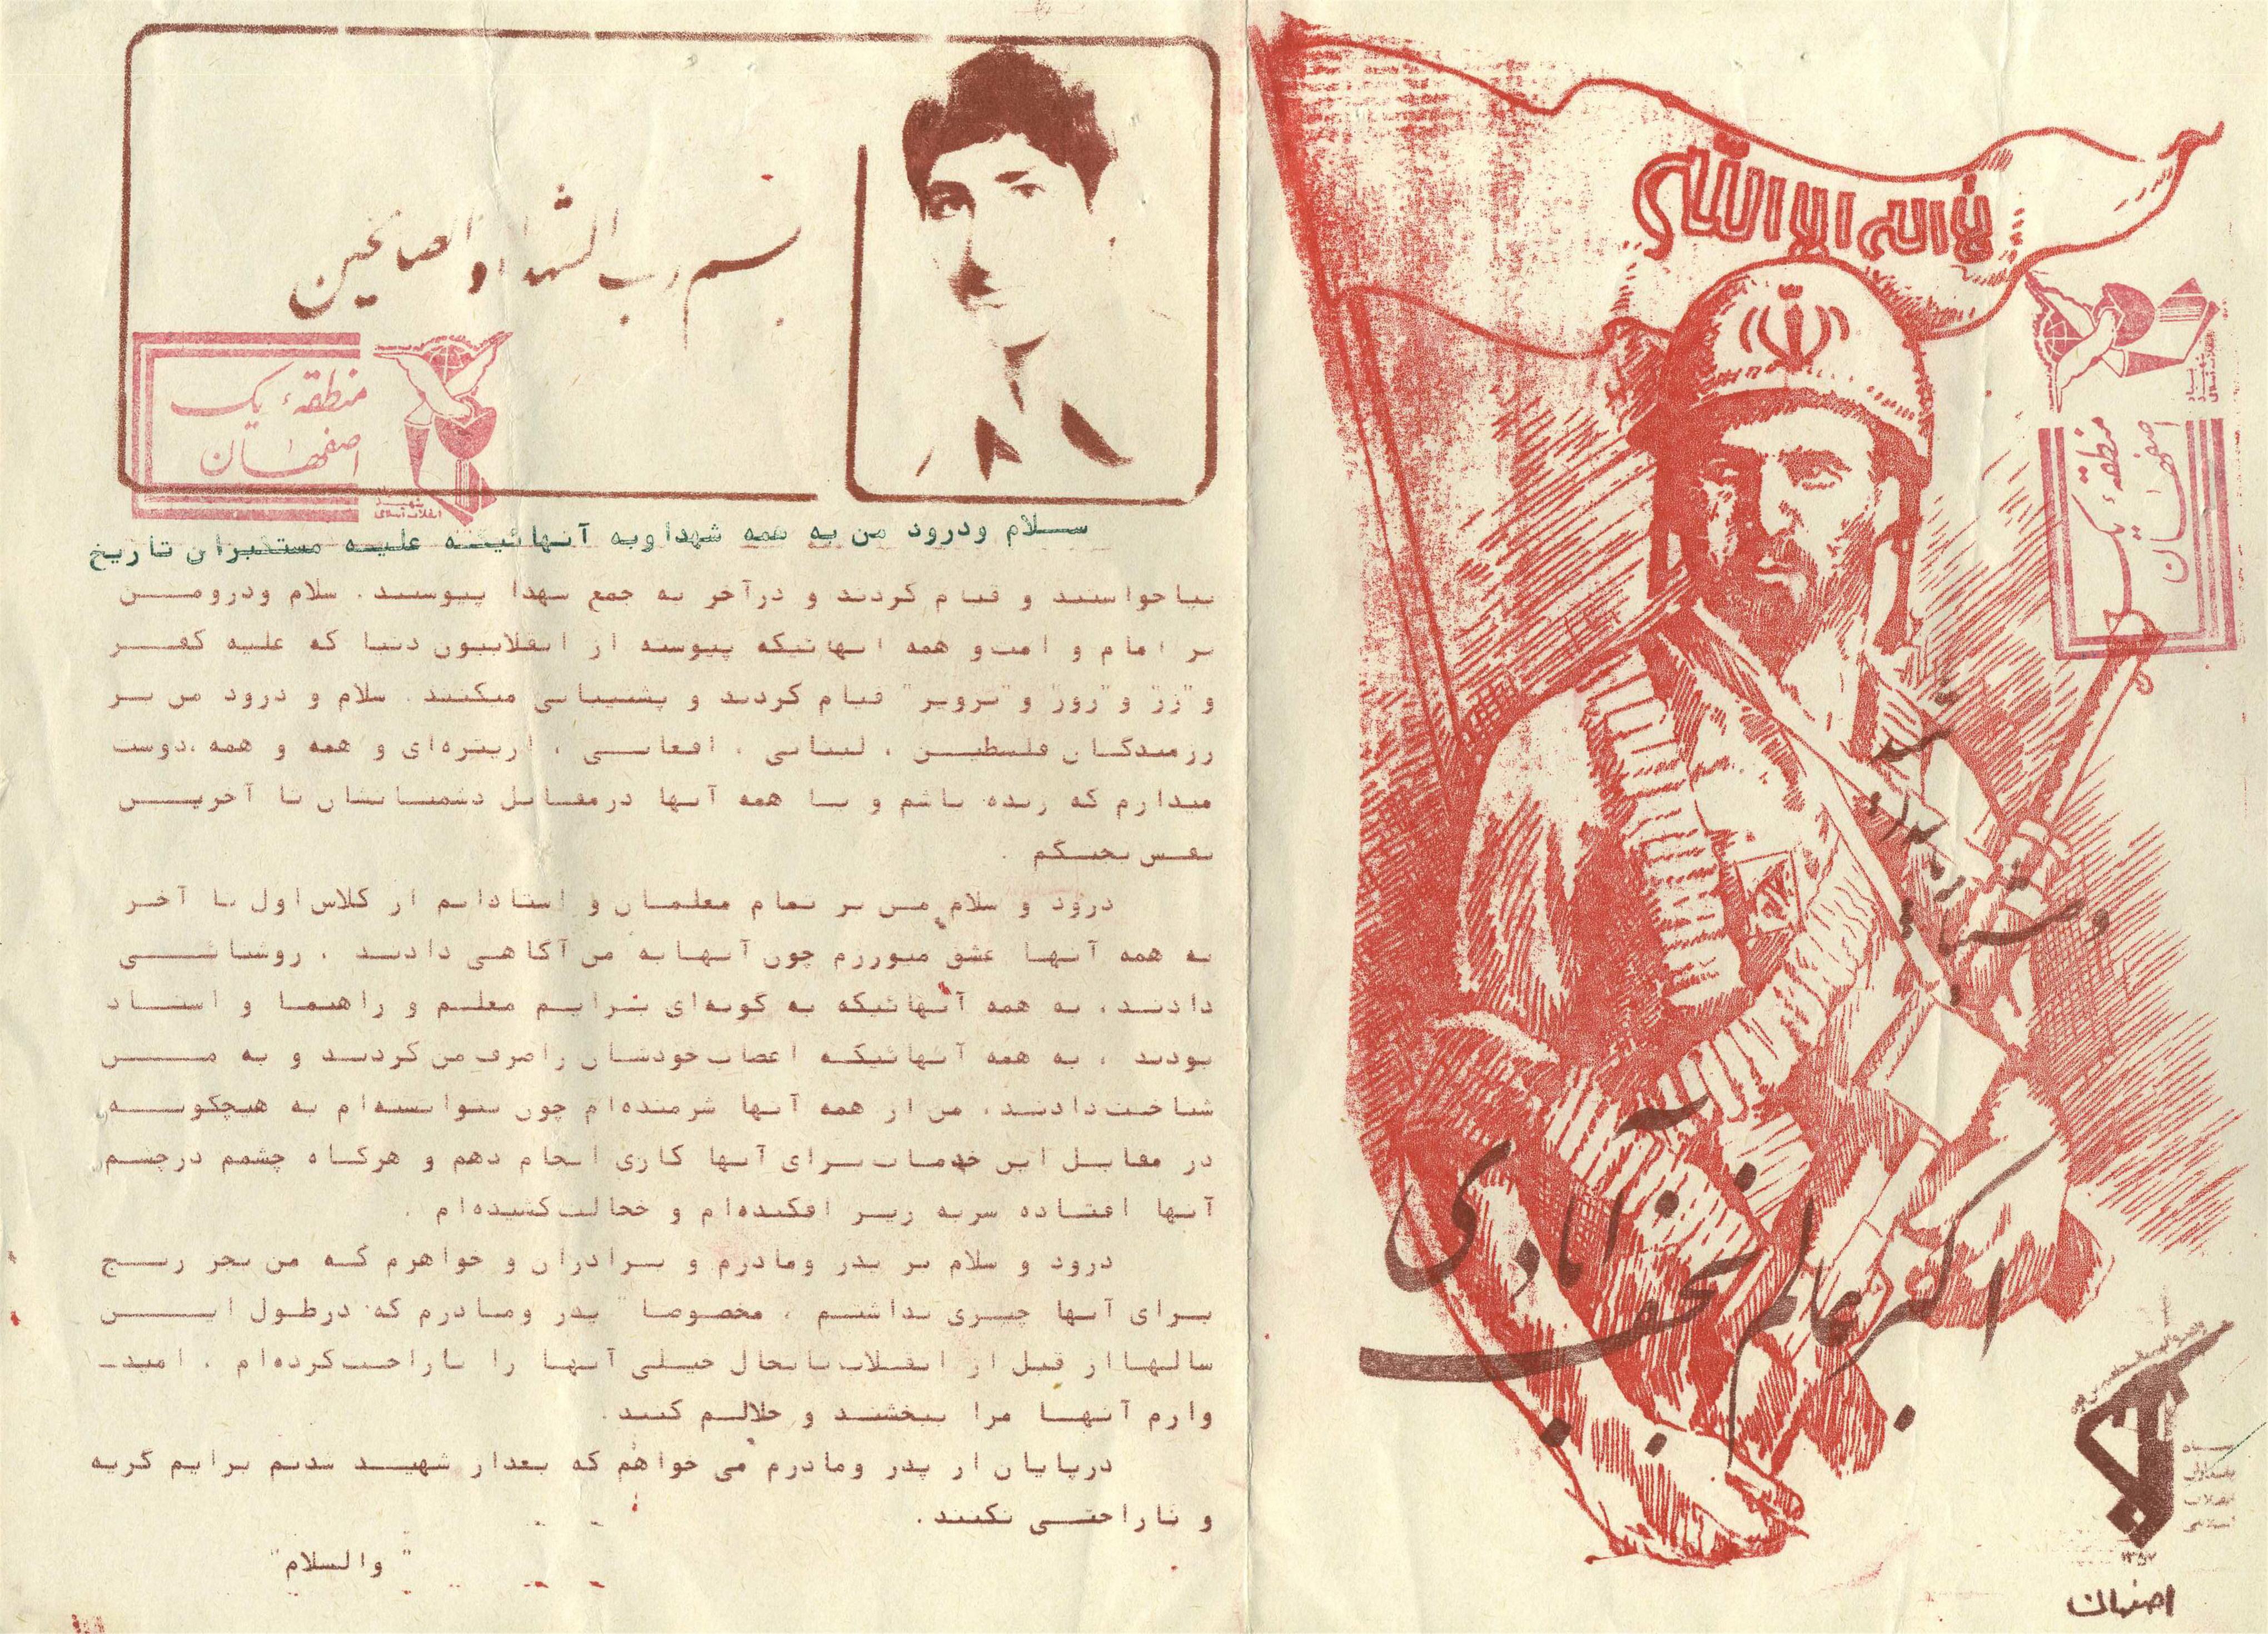 لا اله الا الله
منطقه یک
اصفهان
وصیتنامه پاسدار
شهید
اکبر عالم نجف آبادی
سپاه
پاسداران
انقلاب
اسلامی
اصفهان
بسم رب الشهدا و الصالحین
منطقه یک
اصفهان
سلام ودرود من به همه شهداوبه آنهائیکه علیه مستکبران تاریخ
بپاخواستند و قیام کردند و درآخر به جمع شهدا پیوستند . سلام ودرودمن
بر امام و امت و همه آنهائیکه پیوسته از انقلابیون دنیا که علیه کفر
و "زر" و "زور" و "تزویر" قیام کردند و پشتیبانی میکنند . سلام و درود من بر
رزمندگان فلسطین ، لبنانی ، افغانی ، اریتره‌ای و همه و همه ،دوست
میدارم که زنده باشم و با همه آنها درمقابل دشمنانشان تا آخرین
نفس بجنگم .
درود و سلام من بر تمام معلمان و استادانم از کلاس اول تا آخر
به همه آنها عشق میورزم چون آنهابه من آگاهی دادند . روشنائی
دادند ، به همه آنهائیکه به گونه‌ای برایم معلم و راهنما و استاد
بودند ، به همه آنهائیکه اعصاب خودشان راصرف من کردند و به من
شناخت دادند . من از همه آنها شرمنده‌ام چون نتوانسته‌ام به هیچگونه
در مقابل این خدمات برای آنها کاری انجام دهم و هرگاه چشمم درچشم
آنها افتاده سربه زیر افکنده‌ام و خجالت کشیده‌ام .
درود و سلام بر پدر ومادرم و برادران و خواهرم که من بجز رنج
برای آنها چیزی نداشتم ، مخصوصا" پدر ومادرم که درطول این
سالهااز قبل از انقلاب تابحال خیلی آنها را ناراحت کرده‌ام . امید‌ـ
وارم آنها مرا ببخشند و حلالم کنند .
درپایان از پدر ومادرم می خواهم که بعداز شهید شدنم برایم گریه
و ناراحتی نکنند .
" والسلام"